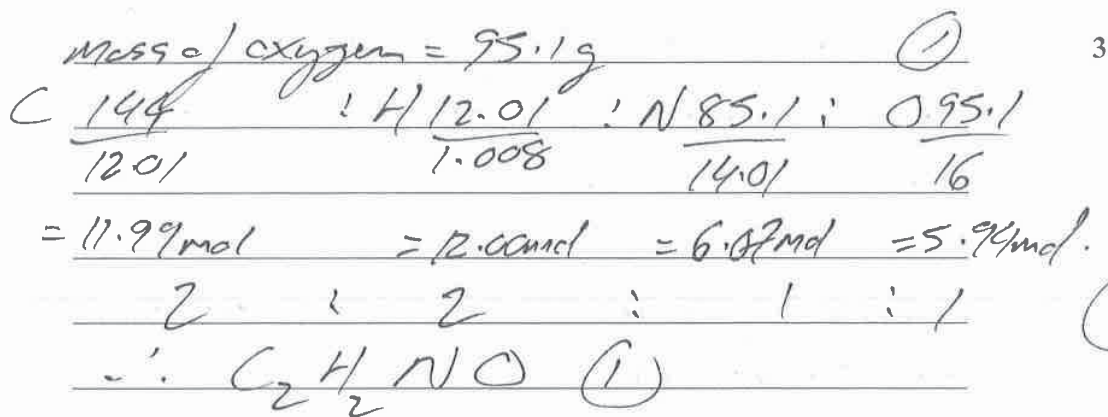 mass of oxygen = 95.1g ① 3
C 144/12.01 : H 12.01/1.008 : N 85.1/14.01 : O 95.1/16
= 11.99mol = 12.00mol = 6.07mol = 5.94mol.
2 : 2 : 1 : 1
∴ C₂H₂NO ①